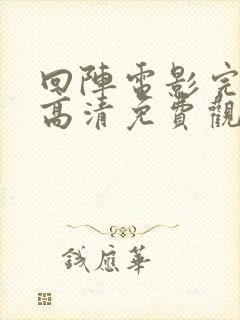 回陣電影完
高清免費觀
錢應華